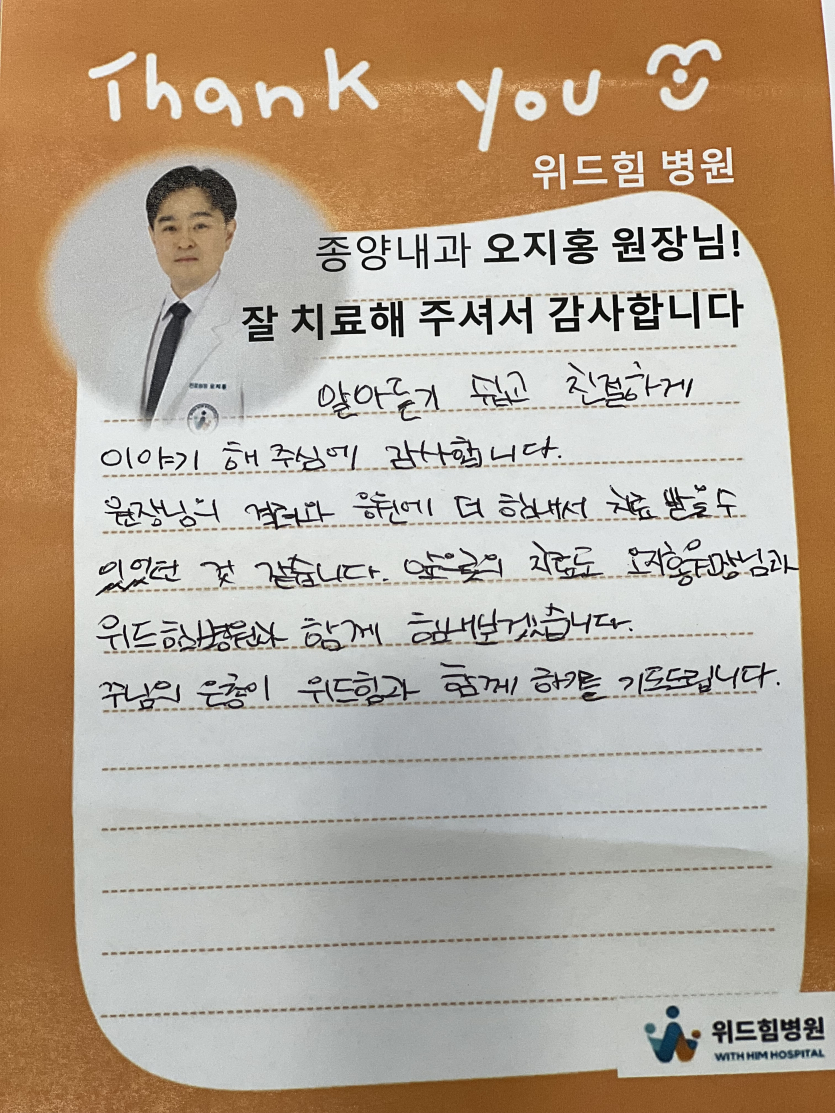 Thank you
위드힘 병원
종양내과 오지홍 원장님!
잘 치료해 주셔서 감사합니다
알아듣기 쉽고 친절하게
이야기 해 주심에 감사합니다.
원장님의 격려와 응원에 더 힘내서 치료 받을 수
있었던 것 같습니다. 앞으로의 치료도 오지홍원장님과
위드힘병원과 함께 힘내보겠습니다.
주님의 은총이 위드힘과 함께 하기를 기도드립니다.
위드힘병원
WITH HIM HOSPITAL